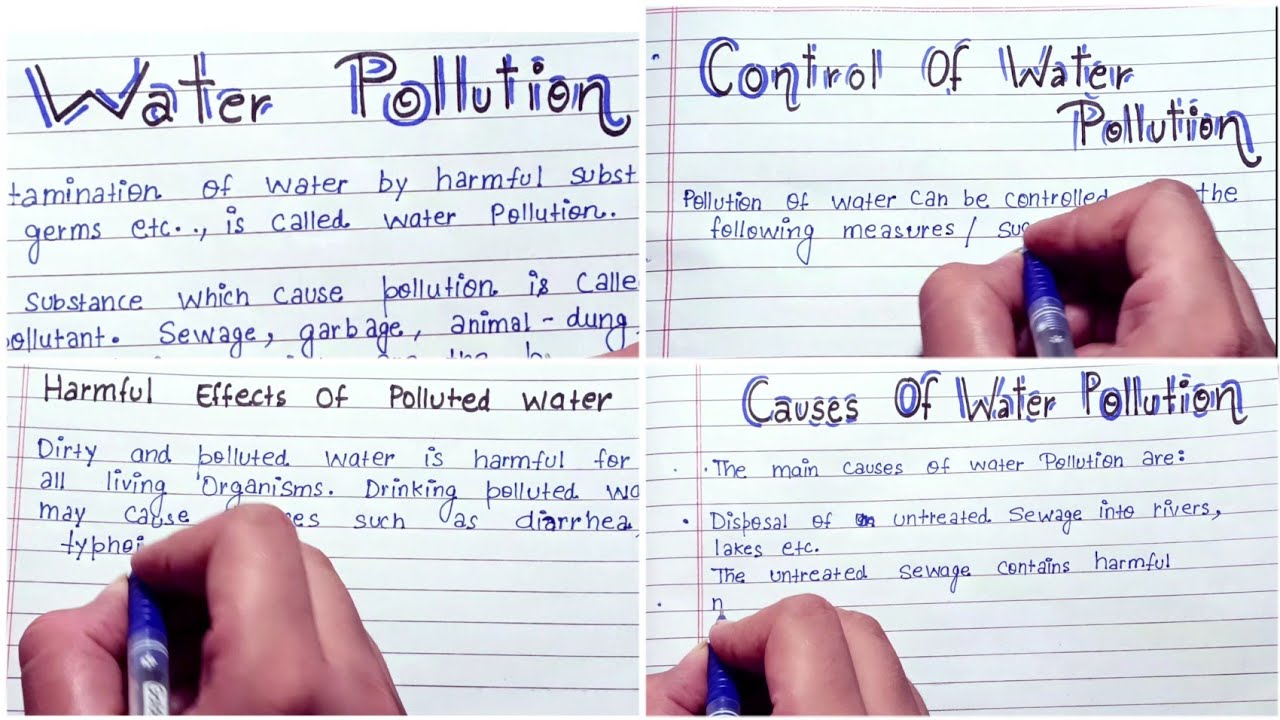 Water Pollution
tamination of water by harmful subst
germs etc.., is called water Pollution.
Substance which cause pollution is Calle
ollutant. Sewage, garbage, animal-dung.
the
Control Of Water
Pollution
Pollution of water can be controlled the
following measures/
Harmful Effects Of Polluted water
Dirty and polluted water is harmful for
all living Organisms. Drinking polluted wa
may cause such as diarrhea,
typhoi
Causes Of Water Pollution
The main causes of water Pollution are:
• Disposal of untreated sewage into rivers,
lakes etc.
The untreated sewage contains harmful
n